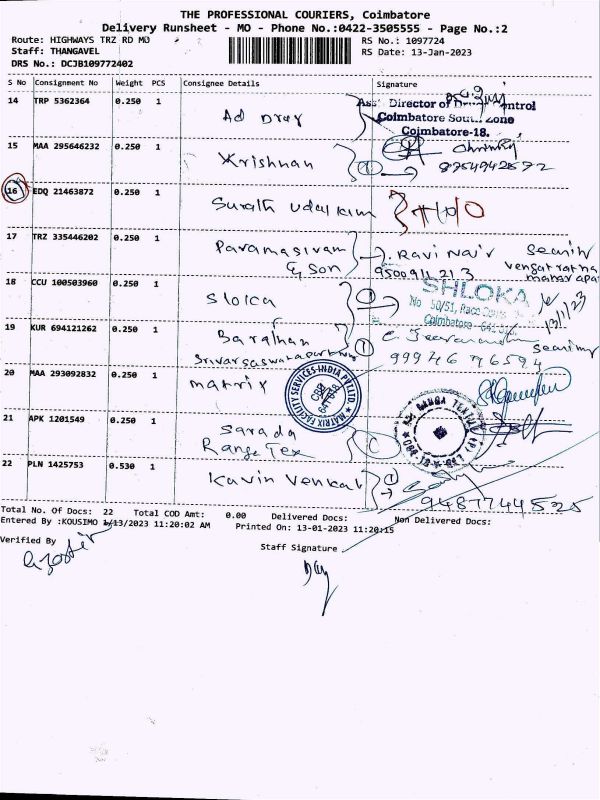 THE PROFESSIONAL COURIERS, Coimbatore
Delivery Runsheet - MO - Phone No.:0422-3505555 - Page No.:2
Route: HIGHWAYS TRZ RD MO
RS No.: 1097724
Staff: THANGAVEL
RS Date: 13-Jan-2023
DRS No.: DCJB109772402
S No Consignment No Weight PCS Consignee Details Signature
14 TRP 5362364 0.250 1 Ad Drug
Director of
Coimbatore South Zone
Coimbatore-18.
15 MAA 295646232 0.250 1 Krishnan
16 EDQ 21463872 0.250 1
17 TRZ 335446202 0.250 1 Paramasivam Ravi Nair
& Son 9500911213
18 CCU 100503960 0.250 1 Sloka SHLOKA
No 50/51, Race
Coimbatore
13/1/23
19 KUR 694121262 0.250 1
9994676594
20 MAA 293092832 0.250 1 matrix MATRIX FACILITY SERVICES-INDIA PVT LTD
CBE
641018
21 APK 1201549 0.250 1 Sarada
Range Tex
22 PLN 1425753 0.530 1 Kavin Venkat
9487744525
Total No. Of Docs: 22 Total COD Amt: 0.00 Delivered Docs: Non Delivered Docs:
Entered By :KOUSIMO 1/13/2023 11:20:02 AM Printed On: 13-01-2023 11:20:15
Verified By
Staff Signature